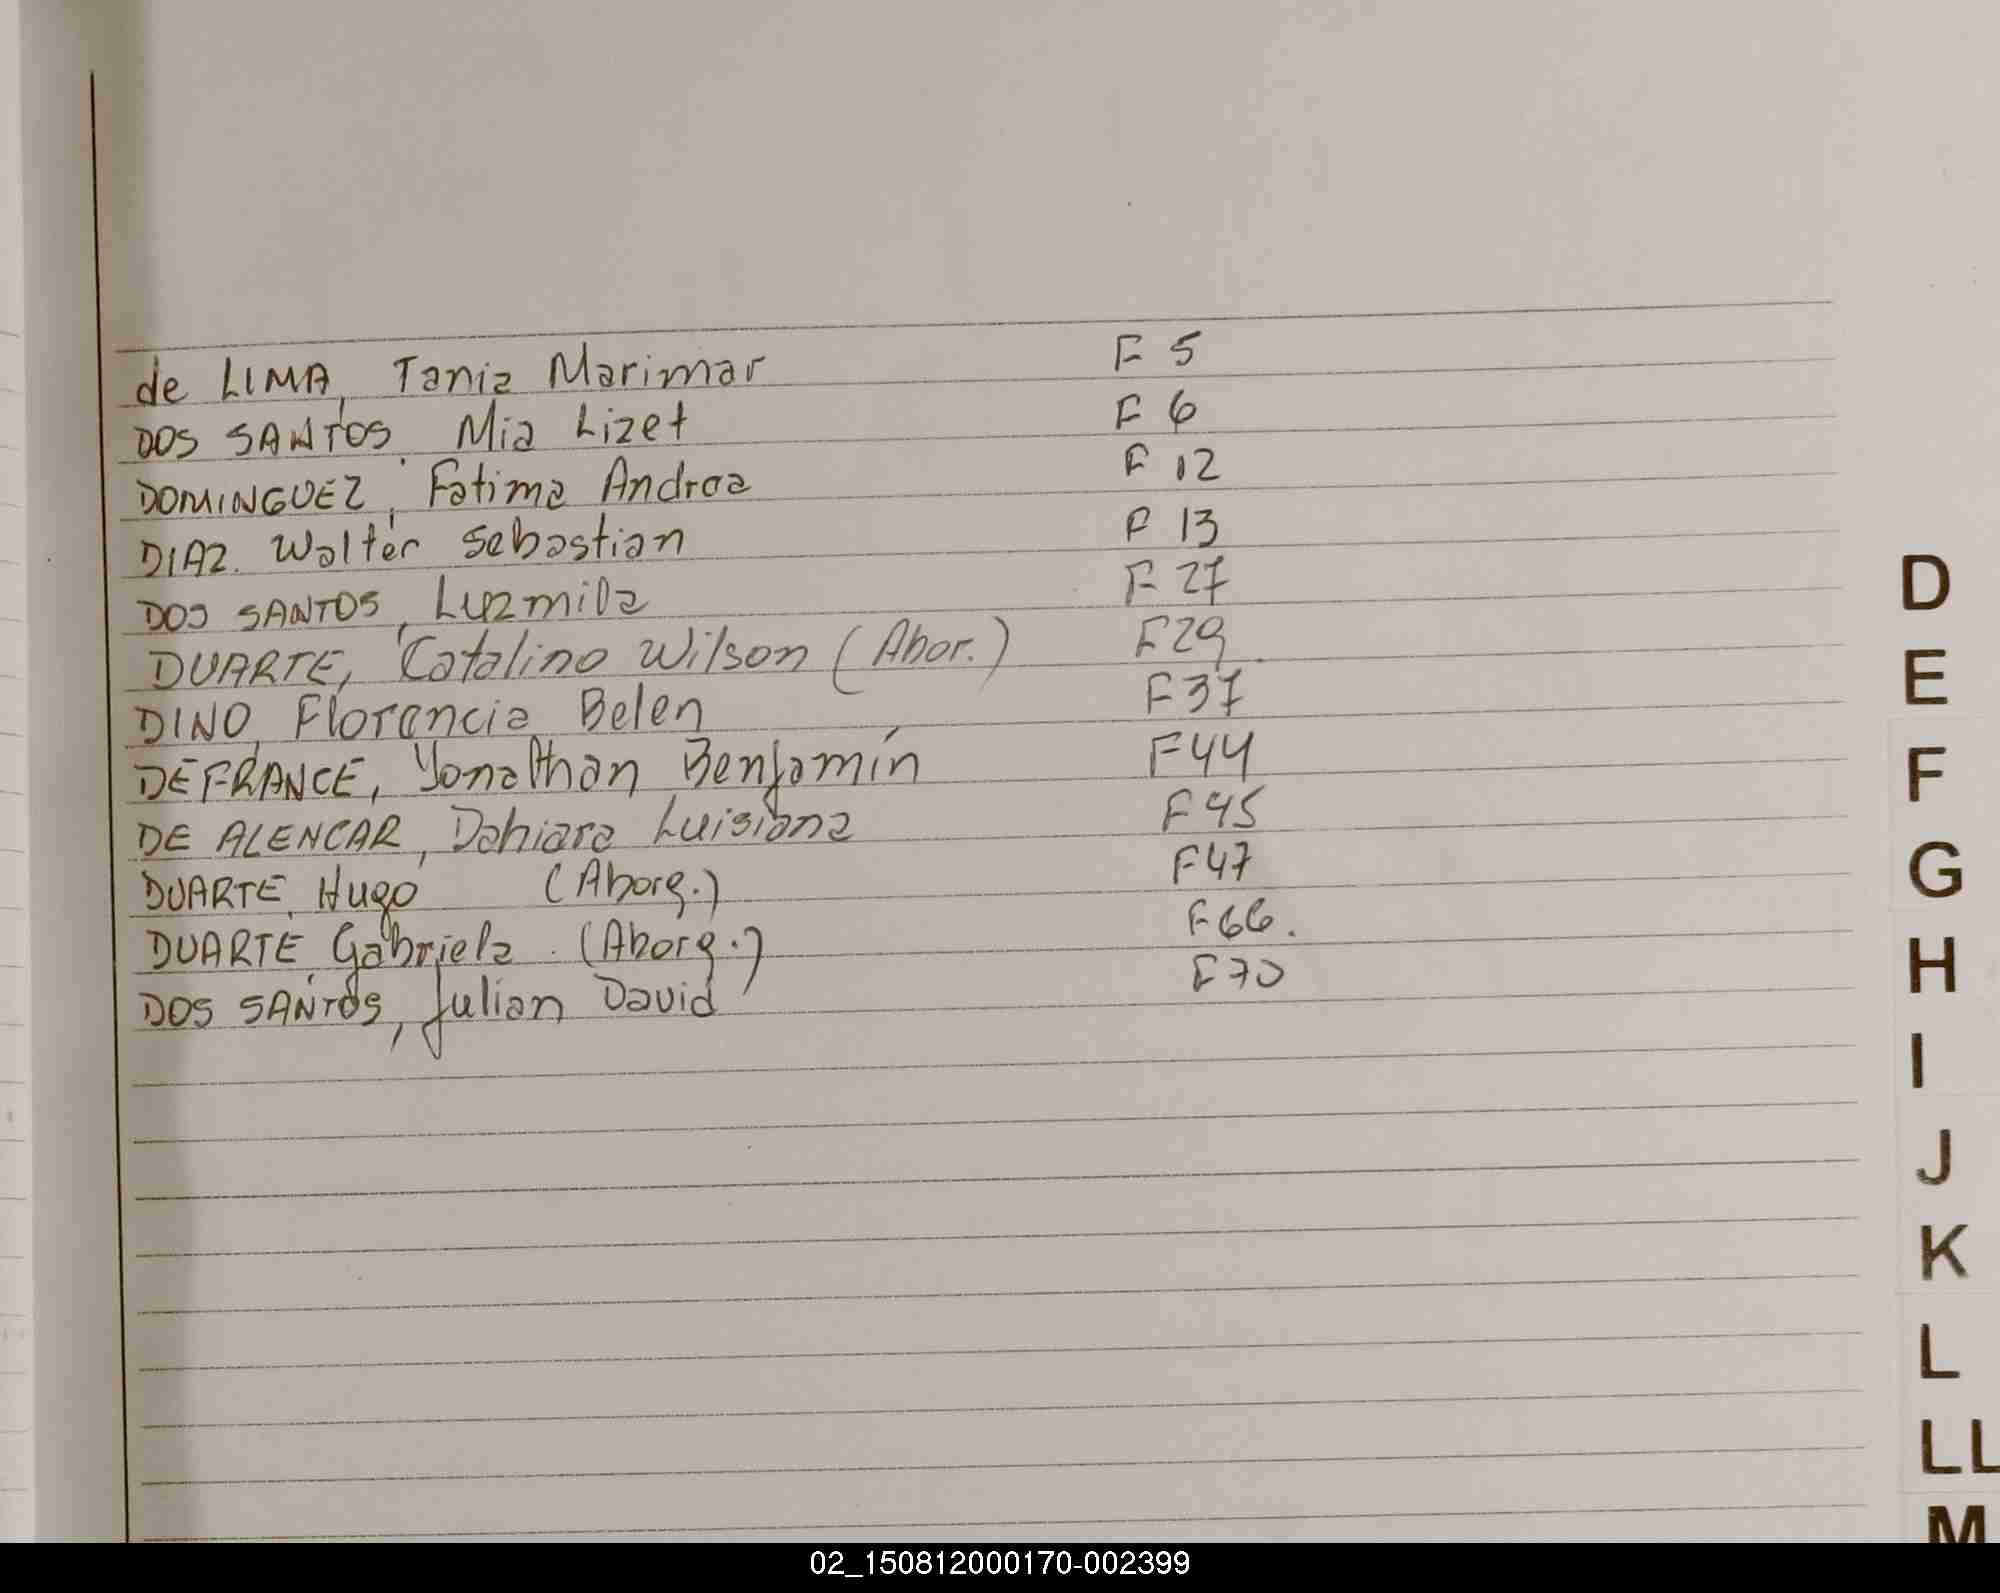 de LIMA, Tania Marimar F 5
DOS SANTOS, Mia Lizet F 6
DOMINGUEZ, Fatima Androa F 12
DIAZ. Walter Sebastian F 13
DOS SANTOS, Luzmila F 27
DUARTE, Catalino Wilson (Abor.) F29
DINO, Florencia Belen F37
DEFRANCE, Yonathan Benjamín F44
DE ALENCAR, Dahiara Luisiana F45
DUARTE, Hugo (Aborg.) F47
DUARTE, Gabriela. (Aborg.) F66.
DOS SANTOS, Julian David F70
D
E
F
G
H
I
J
K
L
LL
M
02_150812000170-002399